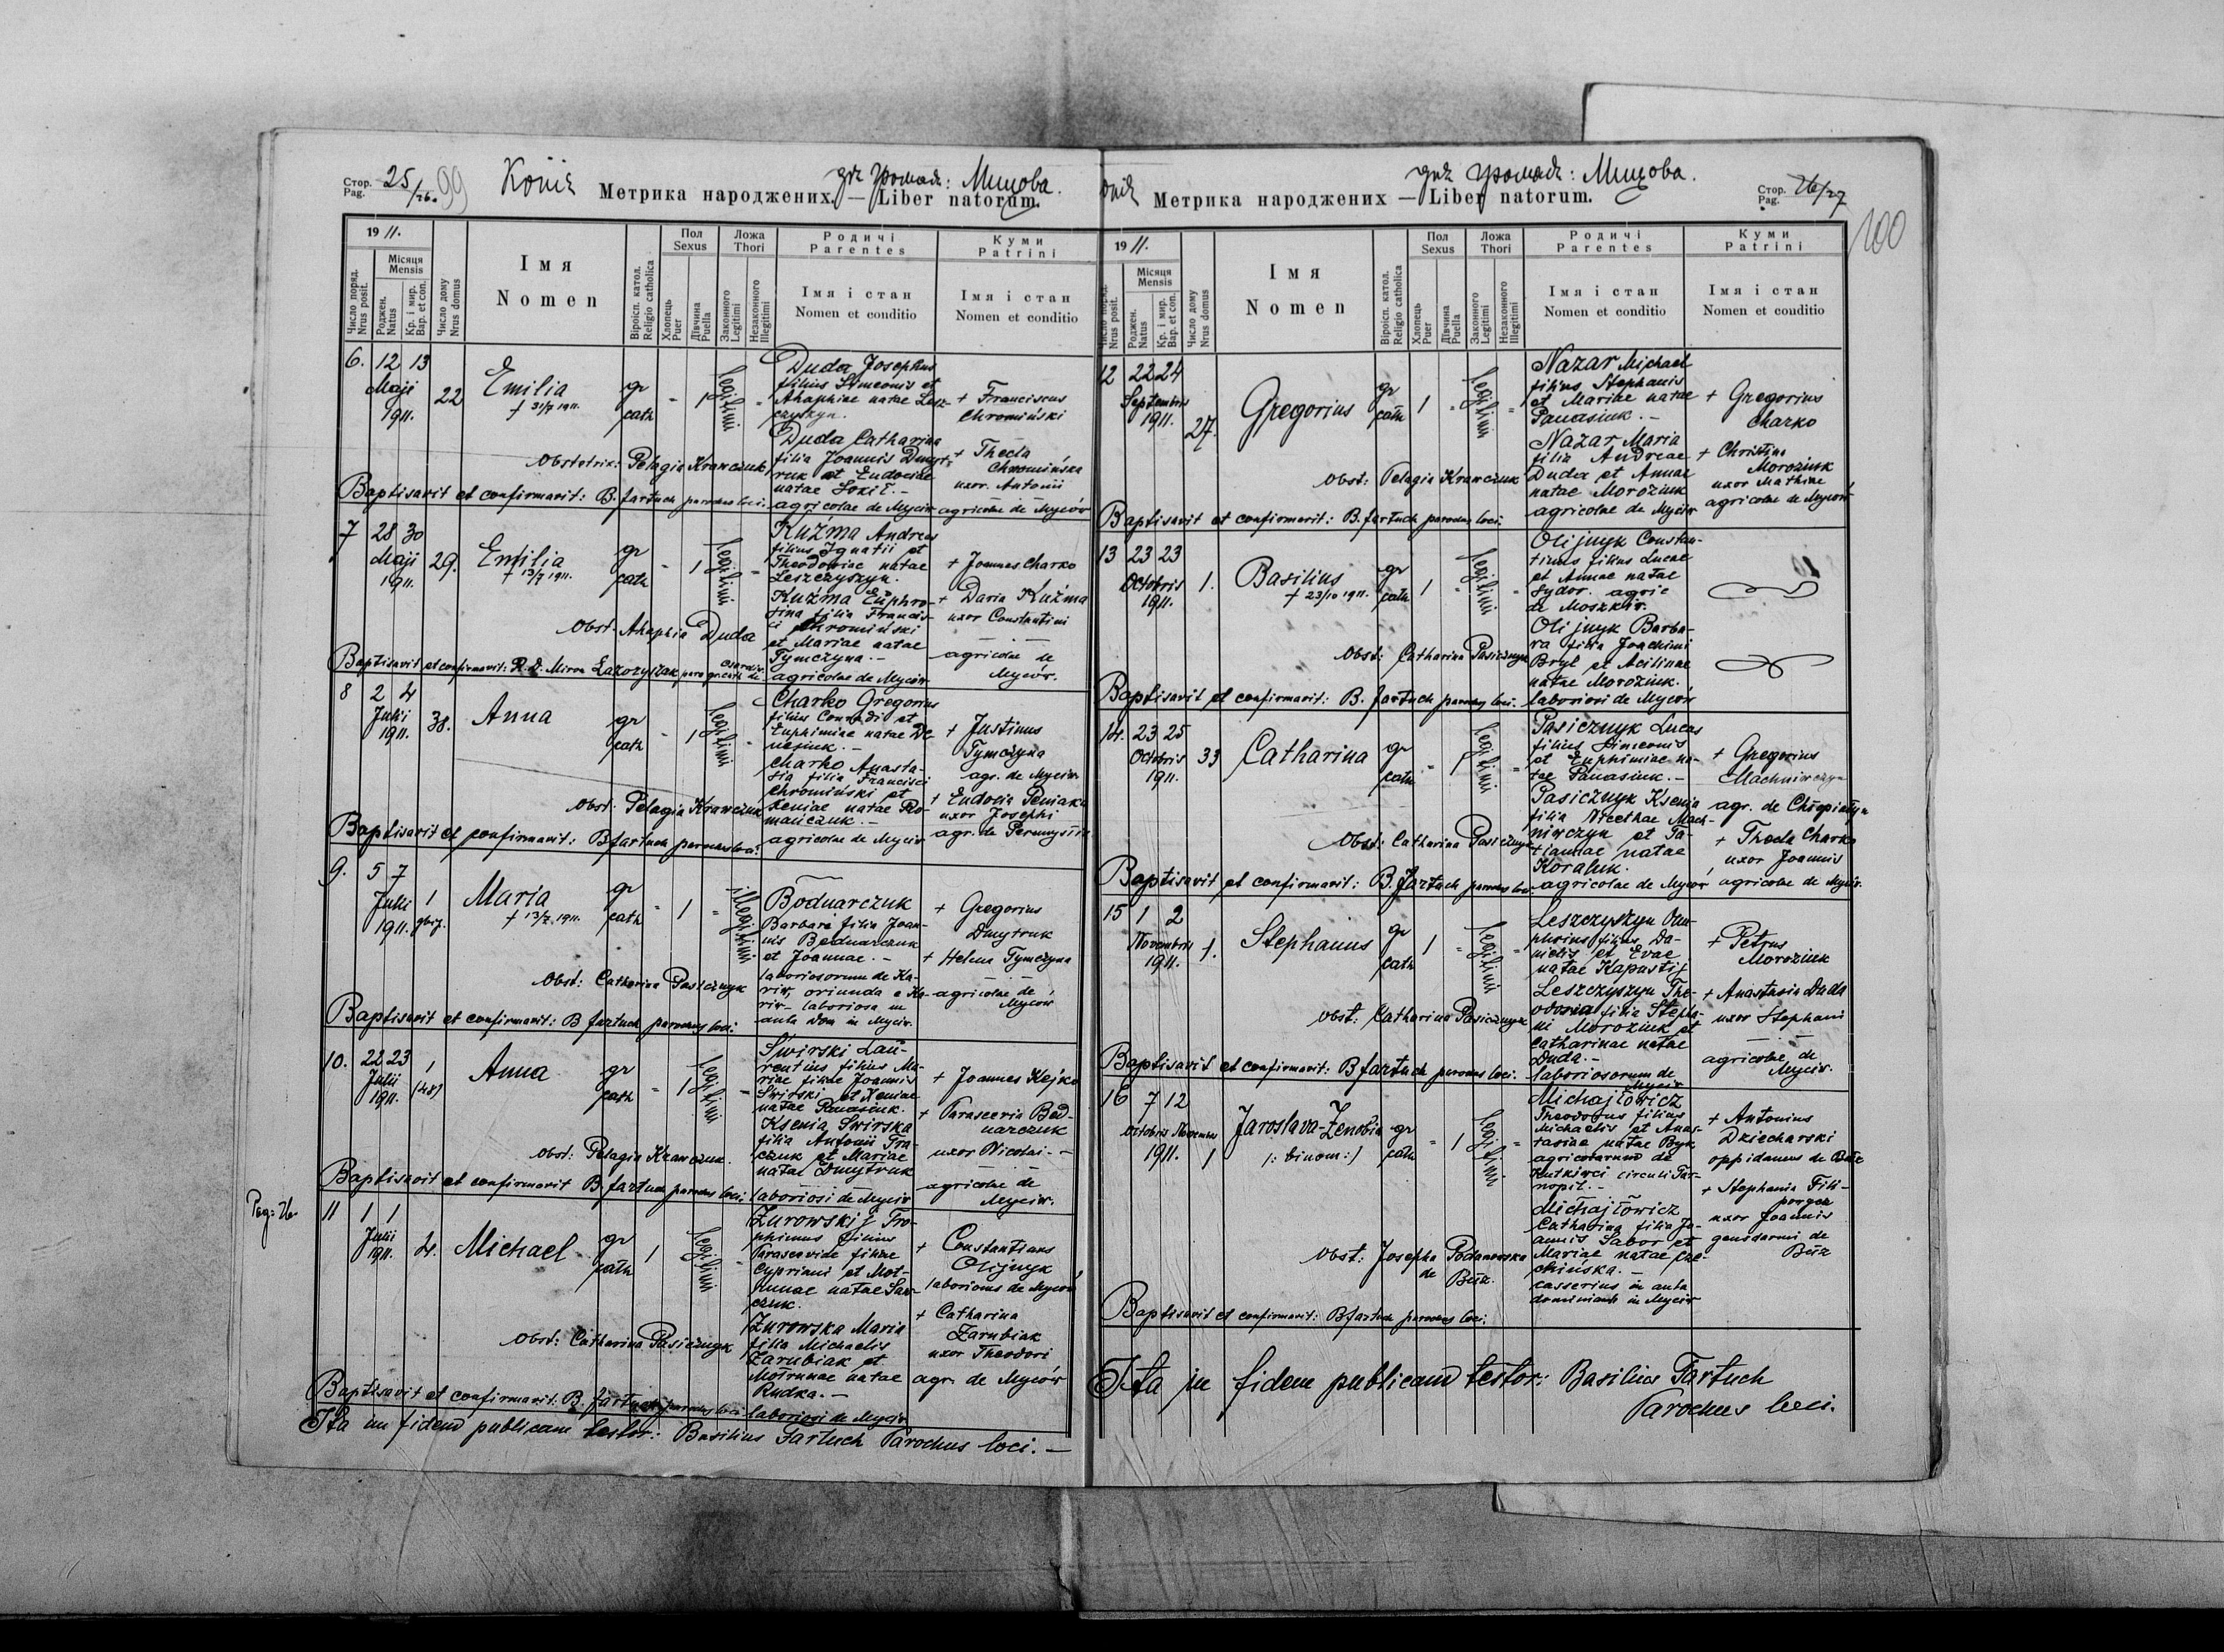 Стор. Pag. 25/26. 99
Копія Метрика народжених. — Liber natorum.
для громади: Мицова.
1911.
Число поряд. Nrus posit.
Місяця Mensis
Роджен. Natus
Кр. і мир. Bap. et con.
Число дому Nrus domus
Імя
Nomen
Віроісп. катол. Religio catholica
Пол Sexus
Хлопець Puer
Дівчина Puella
Ложа Thori
Законного Legitimi
Незаконного Illegitimi
Родичі Parentes
Імя і стан
Nomen et conditio
Куми Patrini
Імя і стан
Nomen et conditio
6. 12 13
Maji 1911. 22 Emilia gr cath - 1 legitimi -
Duda Josephus
filius Simeonis et
Ahaphiae natae Lesz-
czyszyn.
+ Franciscus
Chromiński
Duda Catharina
filia Joannis Dmyt-
ruk et Eudociae
natae
agricolae de Myców
+ Thecla
Chromińska
uxor Antonii
agricolae de Myców
Obstetrix: Pelagia Krawczuk
Baptisavit et confirmavit: B. Fartuch parochus loci.
7 28 30
Maji 1911. 29. Emilia gr cath - 1 legitimi -
+ 13/7 1911.
Kuźma Andreas
filius Ignatii et
Theodosiae natae
Leszczyszyn.
+ Joannes Charko
Kuźma Euphro-
sina filia Francis-
ci Chromiński
et Mariae natae
Tymczyna. -
agricolae de Myców
+ Daria Kuźma
uxor Constantini
agricolae de
Myców.
Obst. Ahaphia Duda
Baptisavit et confirmavit: R. D. Miron
8 2 4
Julii 1911. 38. Anna gr cath - 1 legitimi -
Charko Gregorius
filius Conradi et
Euphimiae natae De-
nesiuk. -
Charko Anasta-
sia filia Francisci
Chromiński et
Xeniae natae Ro-
mańczuk. -
agricolae de Myców
+ Justinus
Tymczyna
agr. de Myców.
+ Eudocia Peniak
uxor Josephi
agr. de
Obst. Pelagia Krawczuk
Baptisavit et confirmavit: B Fartuch parochus loci.
9. 5 7
Julii 1911. 1 Maria gr cath - 1 - illegitimi
+ 13/7. 1911.
Bodnarczuk
Barbara filia Joan-
nis Bednarczuk
et Joannae. -
laboriosorum de Ka-
rów, oriunda e Ka-
rów - laboriosa in
aula dom in Myców.
+ Gregorius
Dmytruk
+ Helena Tymczyna
agricolae de
Myców
Obst: Catharina Pasicznyk
Baptisavit et confirmavit: B Fartuch parochus loci.
10. 22 23
Julii 1911. 1 (48) Anna gr cath - 1 legitimi -
Świrski Lau-
rentius filius Ma-
riae filiae Joannis
Świrski et Xeniae
natae Panasiuk.
Ksenia Świrska
filia Antonii Tra-
czuk et Mariae
natae Dmytruk
laboriosi de Myców
+ Joannes Kejko
+ Parascevia Bed-
narczuk
uxor Nicolai. -
agricolae de
Myców.
Obst: Pelagia Krawczuk.
Baptisavit et confirmavit B. Fartuch parochus loci.
Pag: 26.
11 1 1
Julii 1911. 4. Michael gr cath 1 - legitimi -
Żurowskij Tro-
phimus filius
Parascevide filiae
Cypriani et Mot-
runae natae Saw-
czuk.
Żurowska Maria
filia Michaelis
Zarubiak et
Motrunae natae
Rudka. -
laboriosi de Myców
+ Constantinus
Olijnyk
laboriosus de Myców
+ Catharina
Zarubiak
uxor Theodori
agr. de Myców
Obst: Catharina Pasicznyk
Baptisavit et confirmavit: B. Fartuch parochus loci
Ita in fidem publicam testor: Basilius Fartuch Parochus loci. —
Копія Метрика народжених — Liber natorum.
для громади: Мицова.
Стор. Pag. 26/27
100
1911.
Число поряд. Nrus posit.
Місяця Mensis
Роджен. Natus
Кр. і мир. Bap. et con.
Число дому Nrus domus
Імя
Nomen
Віроісп. катол. Religio catholica
Пол Sexus
Хлопець Puer
Дівчина Puella
Ложа Thori
Законного Legitimi
Незаконного Illegitimi
Родичі Parentes
Імя і стан
Nomen et conditio
Куми Patrini
Імя і стан
Nomen et conditio
12 22 24
Septembris 1911. 27. Gregorius gr cath 1 - legitimi -
Nazar Michael
filius Stephanis
et Mariae natae
Panasiuk. -
Nazar Maria
filia Andreae
Duda et Annae
natae Moroziuk
agricolae de Myców
+ Gregorius
Charko
+ Christina
Moroziuk
uxor Mathiae
agricolae de Myców
Obst: Pelagia Krawczuk
Baptisavit et confirmavit: B. Fartuch parochus loci.
13 23 23
Octobris 1911. 1. Basilius gr cath 1 - legitimi -
+ 23/10 1911.
Olijnyk Constan-
tinus filius Lucae
et Annae natae
Sydor. agric
de Moszków.
Olijnyk Barba-
ra filia Joachimi
Bryl et Acilinae
natae Moroziuk.
laboriosi de Myców
Obst: Catharina Pasicznyk
Baptisavit et confirmavit: B. Fartuch parochus loci.
14. 23 25
Octobris 1911. 33 Catharina gr cath - 1 legitimi -
Pasicznyk Lucas
filius Simeonis
et Euphimiae na-
tae Panasiuk. -
Pasicznyk Ksenia
filia Nicethae Mach-
niwczyn et Ta-
tiannae natae
Koraluk.
agricolae de Myców
+ Gregorius
Machniwczyn
agr. de Chłopiatyn
+ Thecla Charko
uxor Joannis
agricolae de Myców.
Obst: Catharina Pasicznyk
Baptisavit et confirmavit: B. Fartuch parochus loci.
15 1 2
Novembris 1911. 1. Stephanus gr cath 1 - legitimi -
Leszczyszyn Onu-
phrius filius Da-
nielis et Evae
natae Kapustij
Leszczyszyn The-
odosia filia Stepha-
ni Moroziuk et
Catharinae natae
Duda. -
laboriosorum de
Myców
+ Petrus
Moroziuk
+ Anastasia Duda
uxor Stephani
agricolae de
Myców.
Obst: Catharina Pasicznyk
Baptisavit et confirmavit: B Fartuch parochus loci.
16 7 12
Octobris Novembris 1911. 1 Jaroslava-Zenobia gr cath - 1 legitimi -
/: binom :/
Michajłowicz
Theodorus filius
Michaelis et Anas-
tasiae natae Byk
agricolarum de
Kutkiwci circuli Tar-
nopil. -
Michajłowicz
Catharina filia Jo-
annis Sabor et
Mariae natae
casserius in aula
dominicali in Myców
+ Antonius
Dziecharski
oppidanus de Bełz
+ Stephania
uxor Joannis
gendarmi de
Bełz
Obst: Josepha
de Bełz.
Baptisavit et confirmavit: B Fartuch parochus loci.
Ita in fidem publicam testor: Basilius Fartuch
Parochus loci.